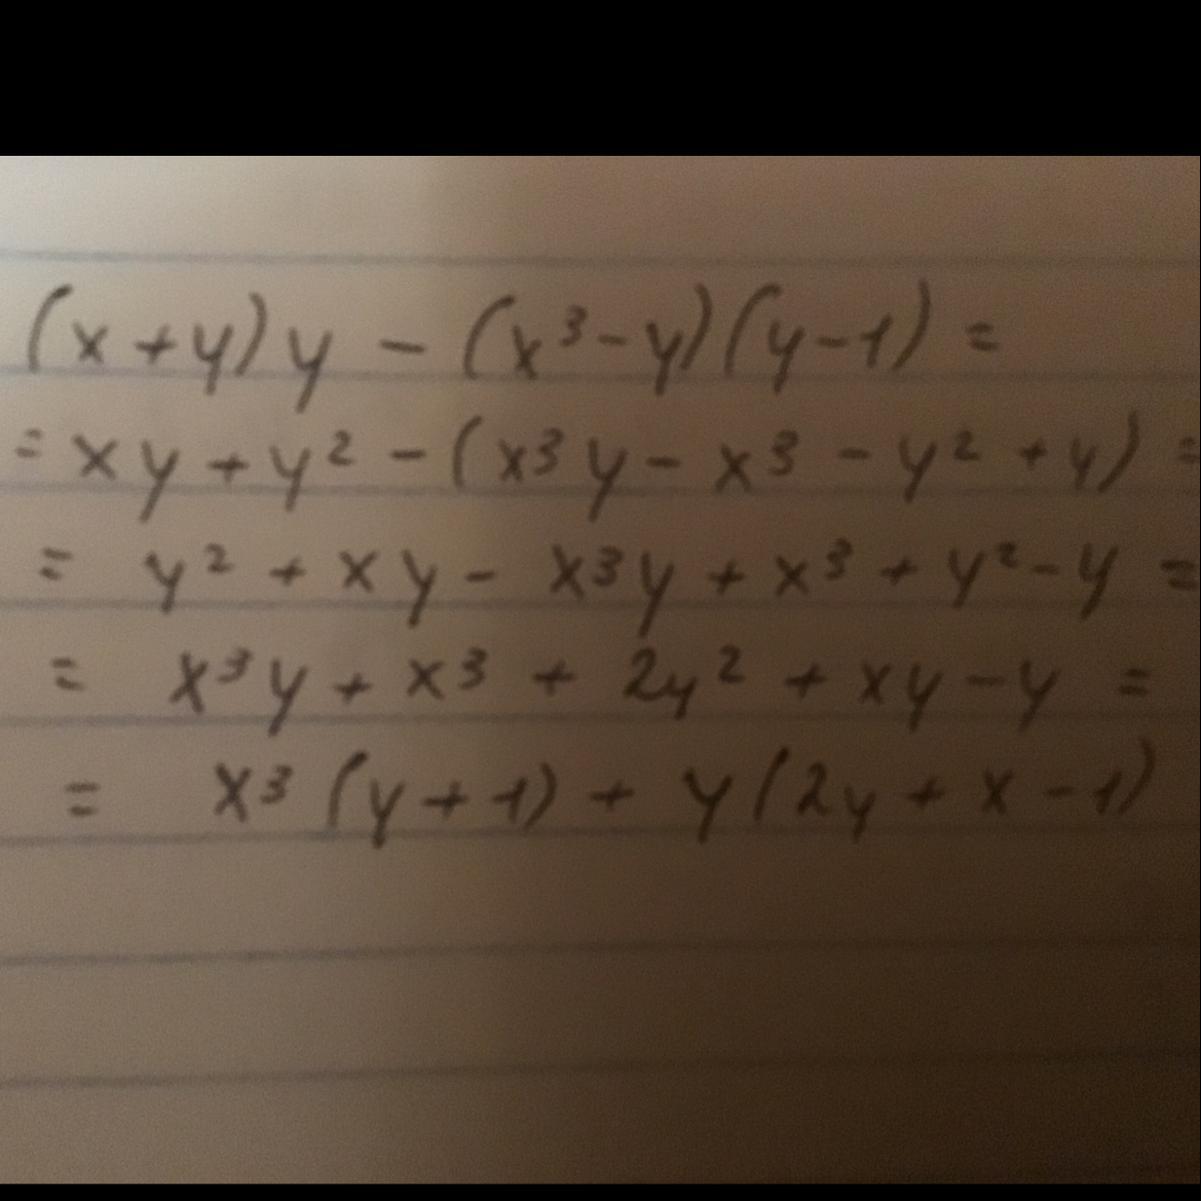 (x+y)y - (x³-y)(y-1) =
= xy + y² - (x³y - x³ - y² + y) =
= y² + xy - x³y + x³ + y² - y =
= x³y + x³ + 2y² + xy - y =
= x³(y+1) + y(2y + x - 1)